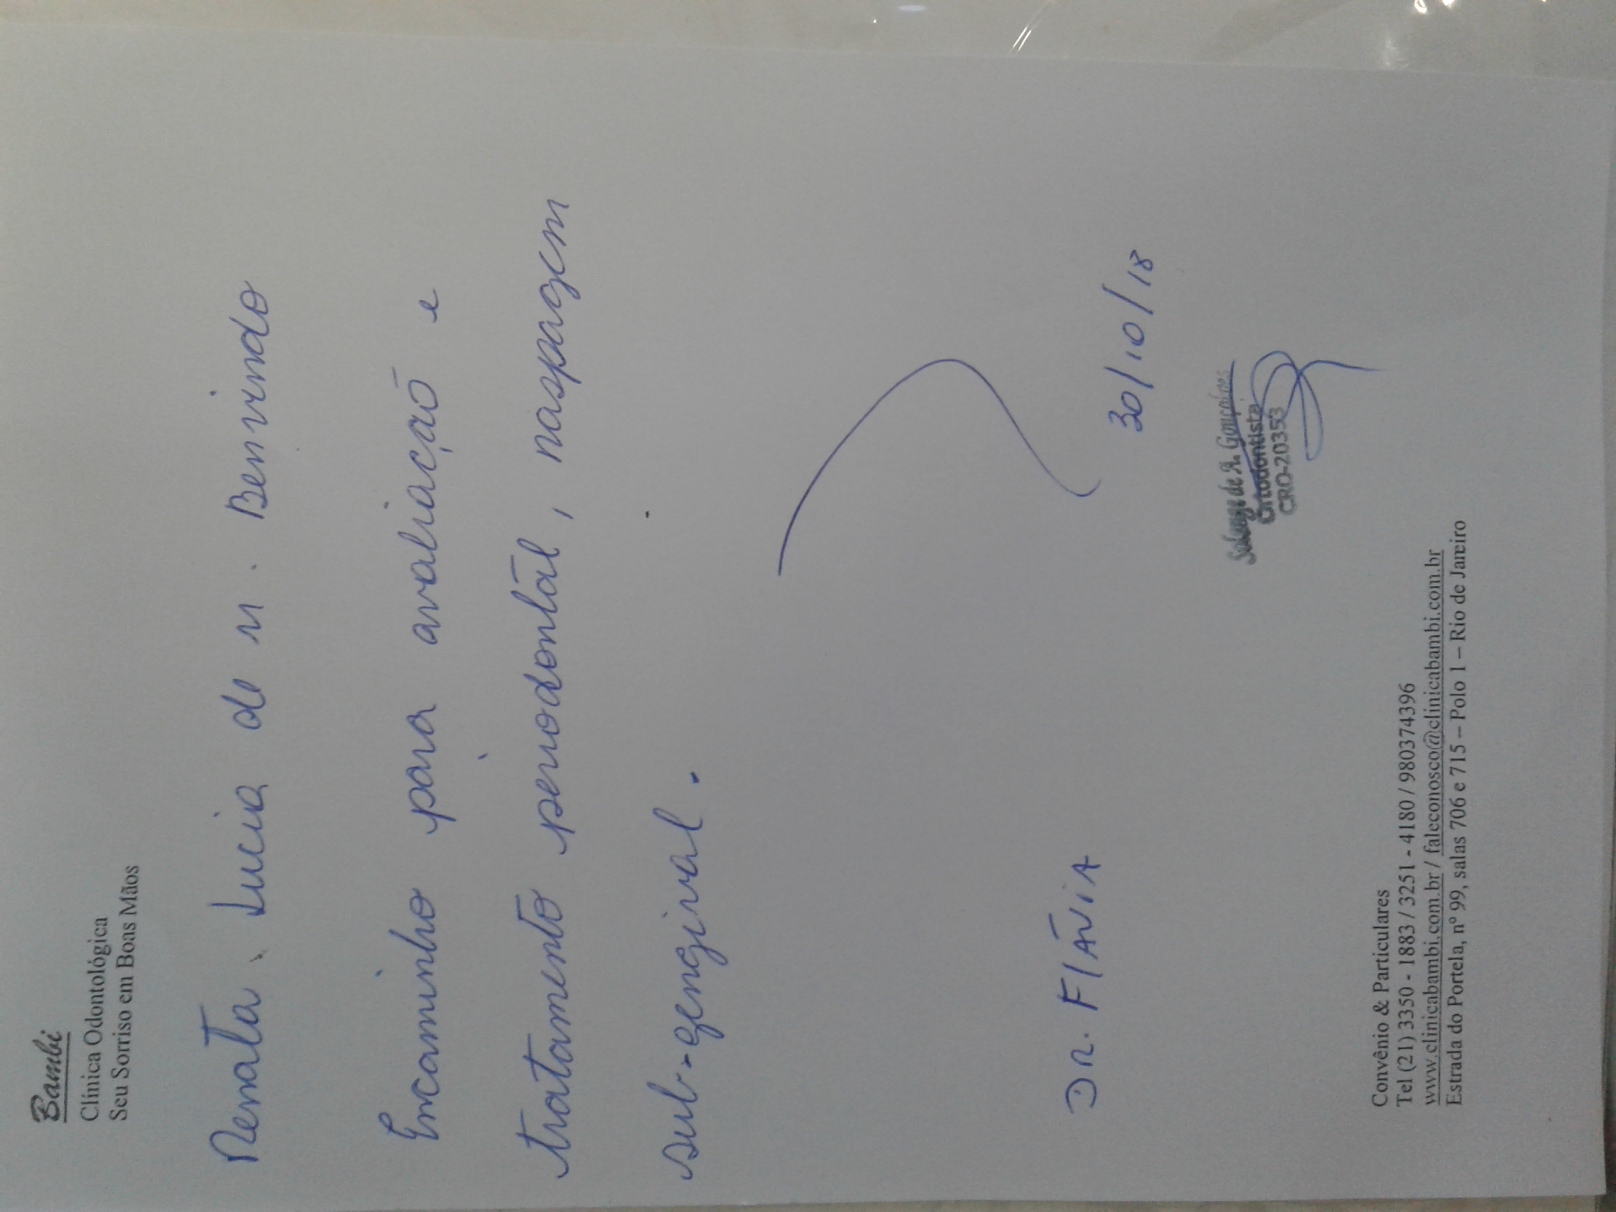 Bambi
Clínica Odontológica
Seu Sorriso em Boas Mãos
Renata Lucia de M. Benvindo
Encaminho para avaliação e
tratamento periodontal, raspagem
sub-gengival.
Dr. FláviA
30/10/18
Solange de A. Gonçalves
Ortodontista
CRO-20353
Convênio & Particulares
Tel (21) 3350 - 1883 / 3251 - 4180 / 980374396
www.clinicabambi.com.br / faleconosco@clinicabambi.com.br
Estrada do Portela, nº 99, salas 706 e 715 – Polo 1 – Rio de Janeiro